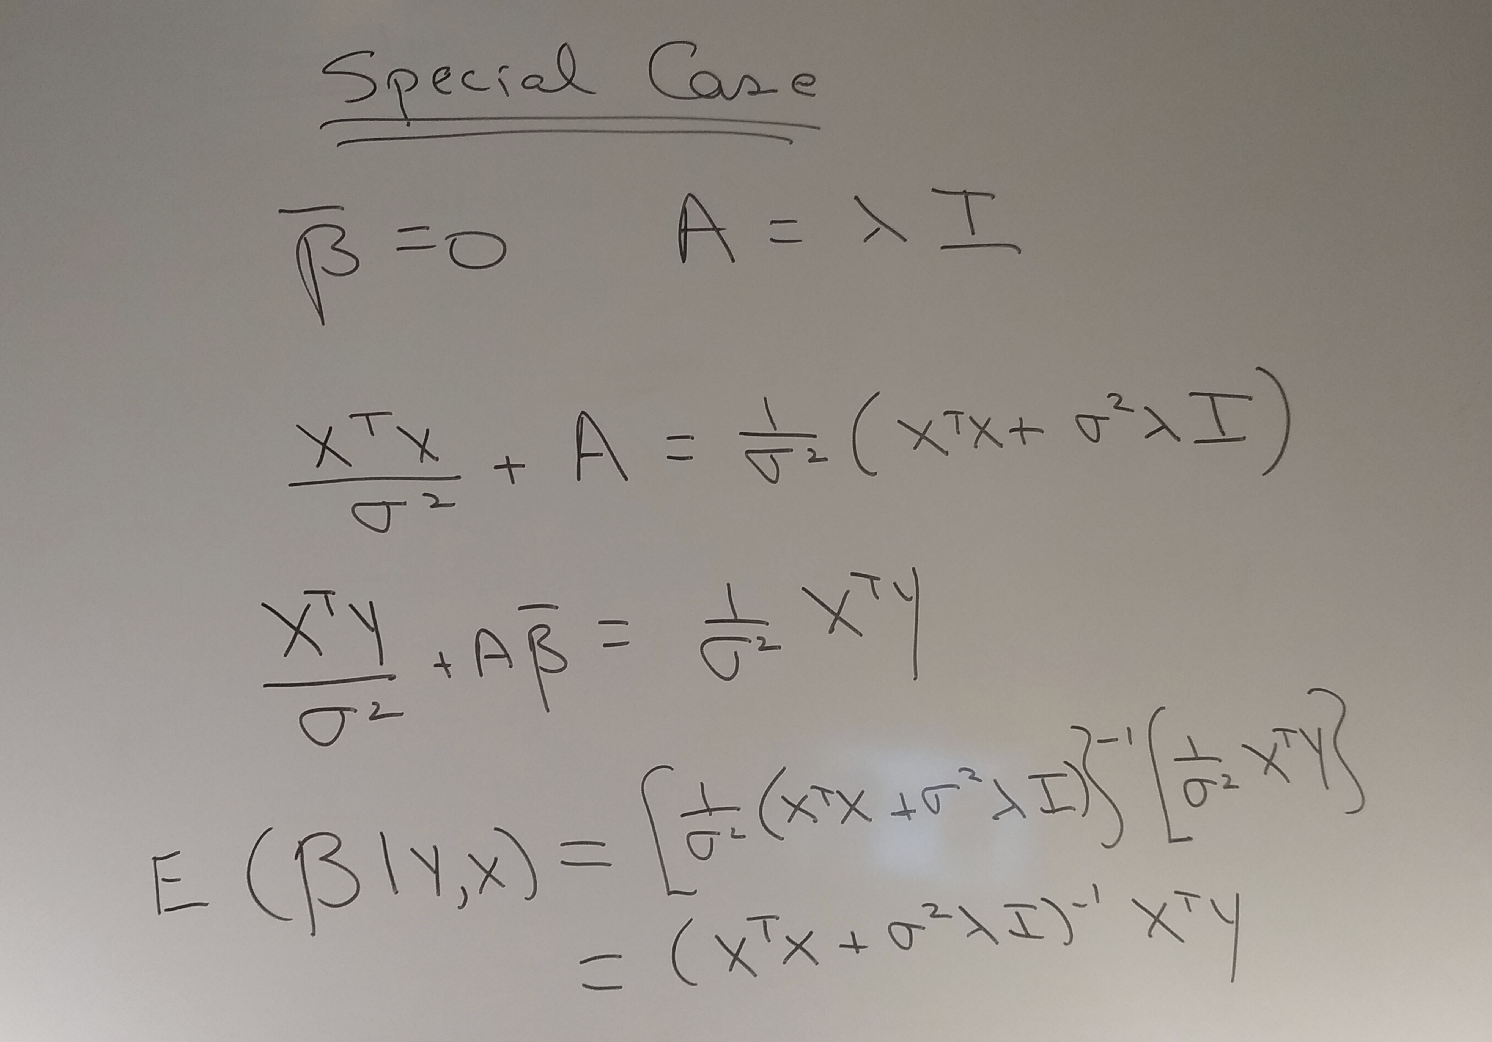 Special Case
β̅ = 0 A = λ I
XᵀX/σ² + A = 1/σ² (XᵀX + σ²λ I)
XᵀY/σ² + Aβ̅ = 1/σ² XᵀY
E (β | Y, X) = [1/σ² (XᵀX + σ²λ I)}⁻¹ [1/σ² XᵀY}
= (XᵀX + σ²λ I)⁻¹ XᵀY